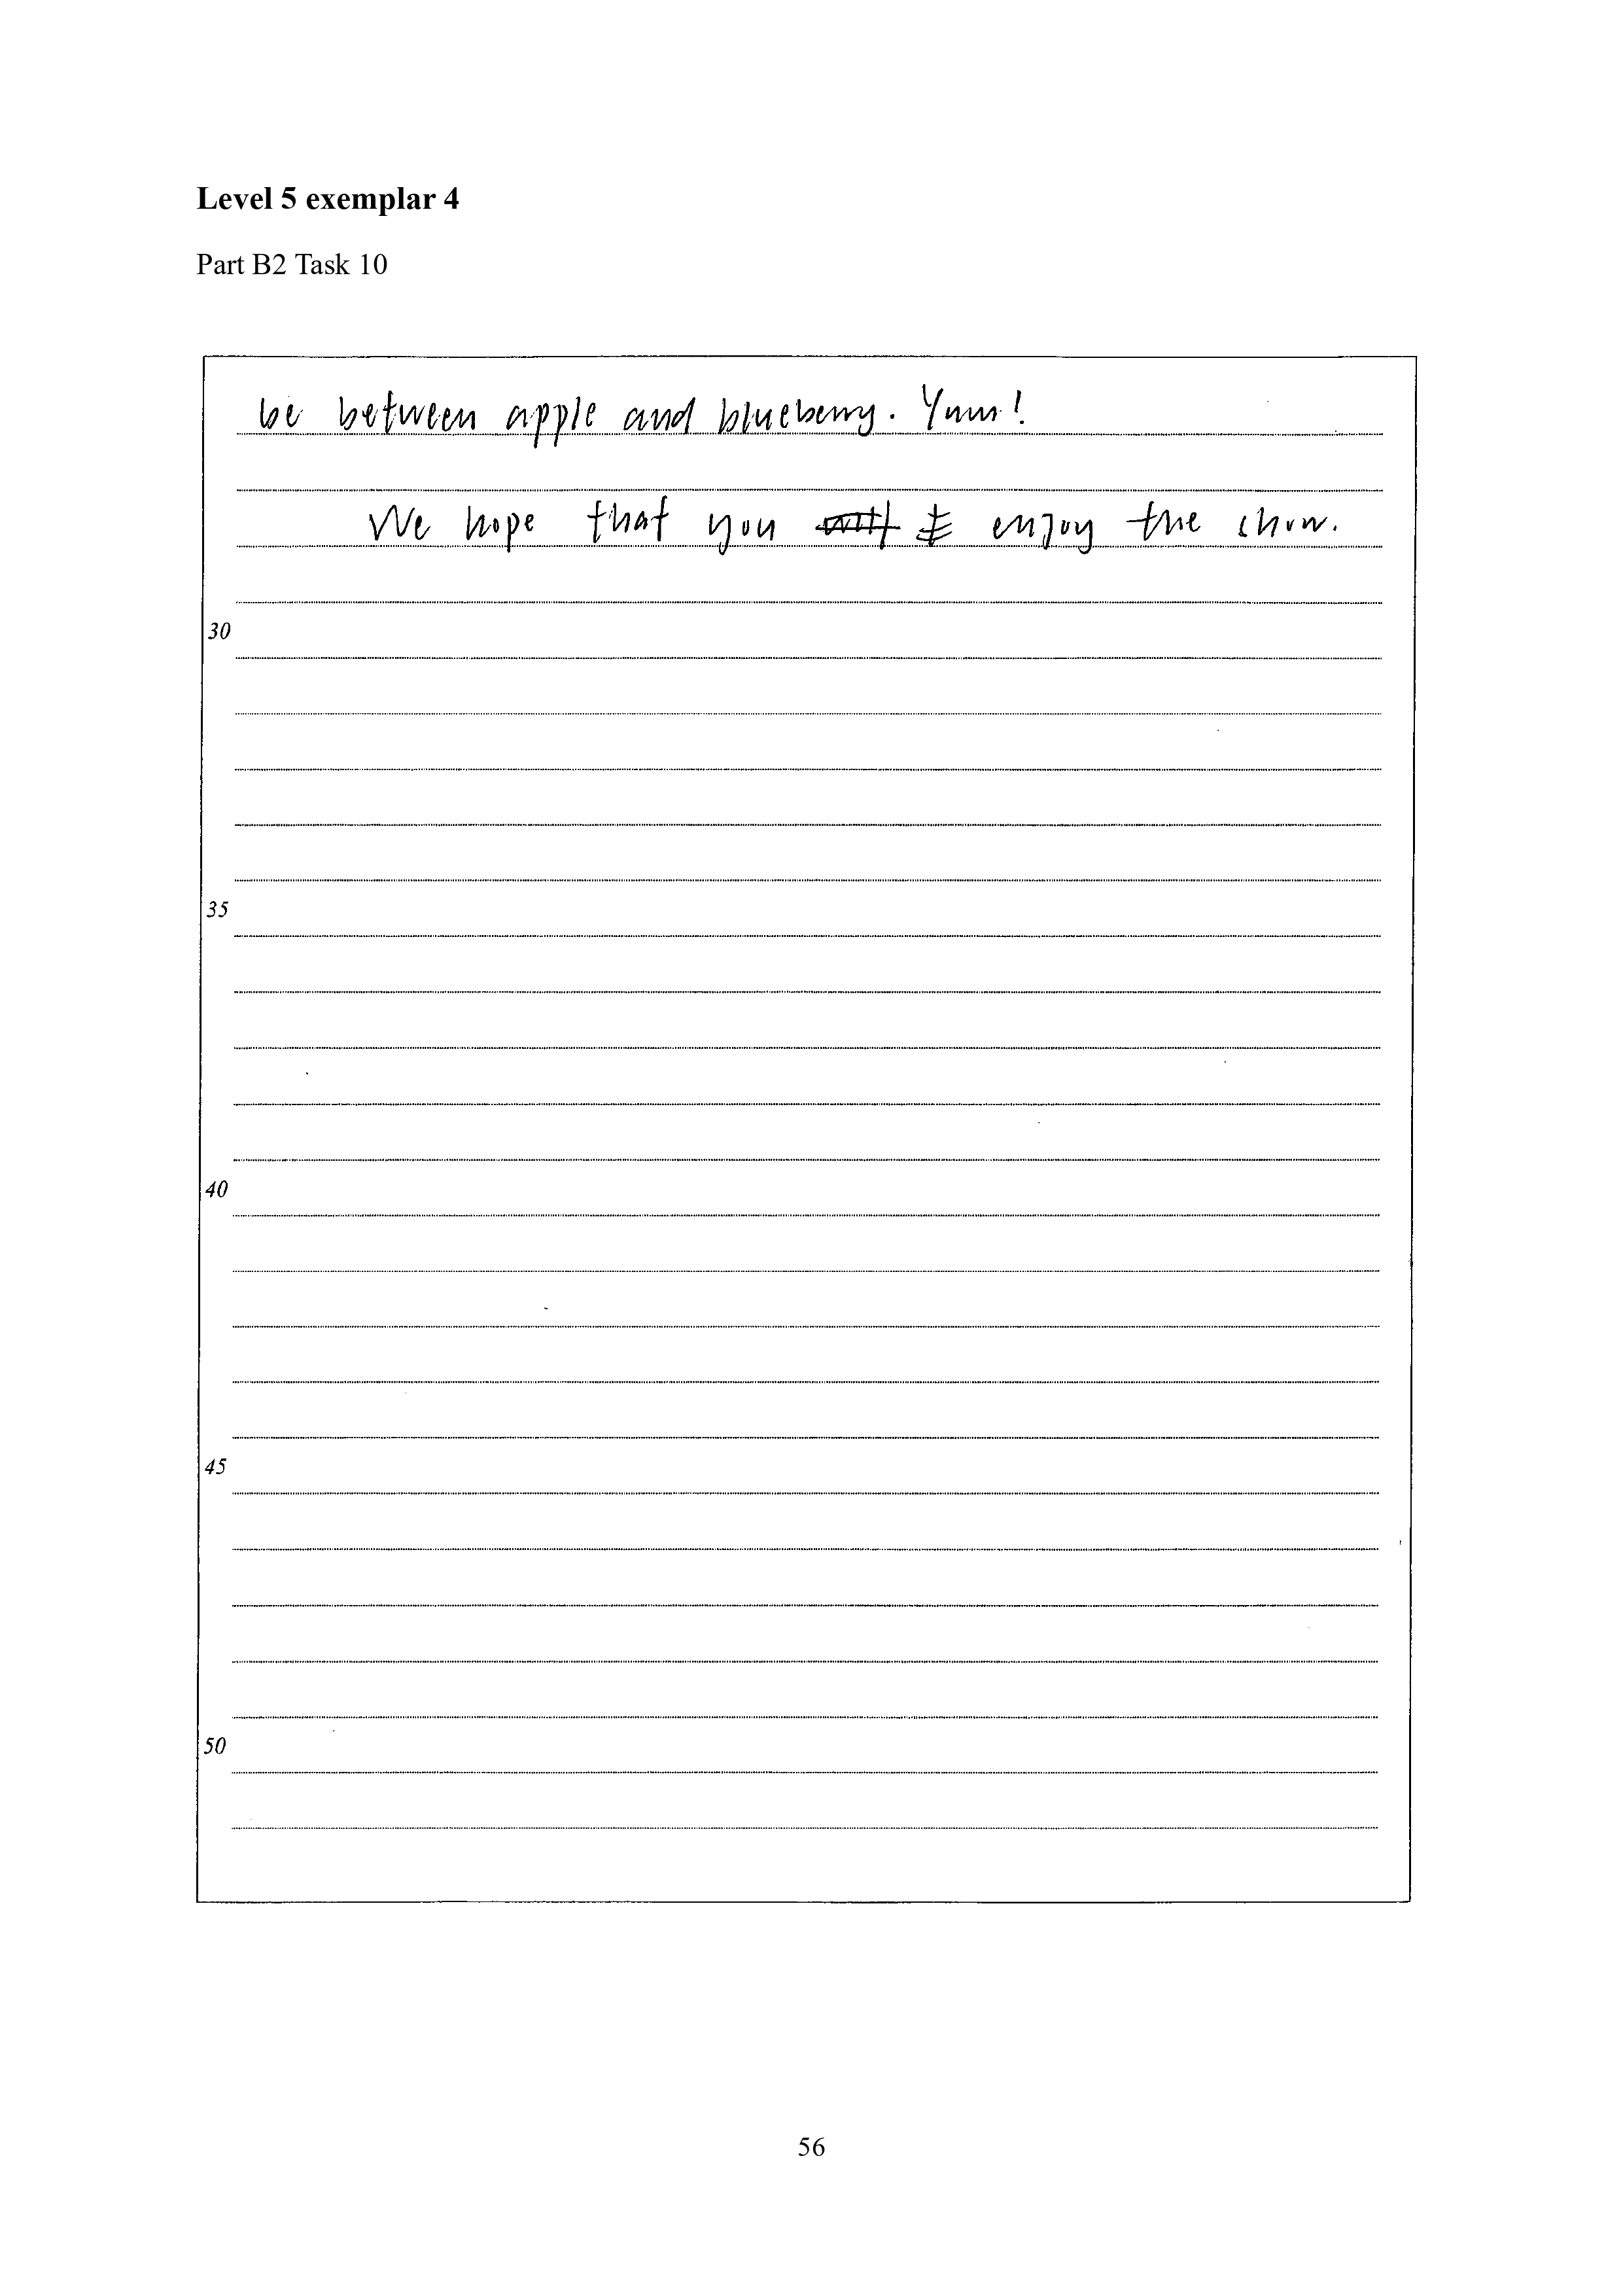 Level 5 exemplar 4
Part B2 Task 10
be between apple and blueberry. Yum!
We hope that you enjoy the show.
30
35
40
45
50
56